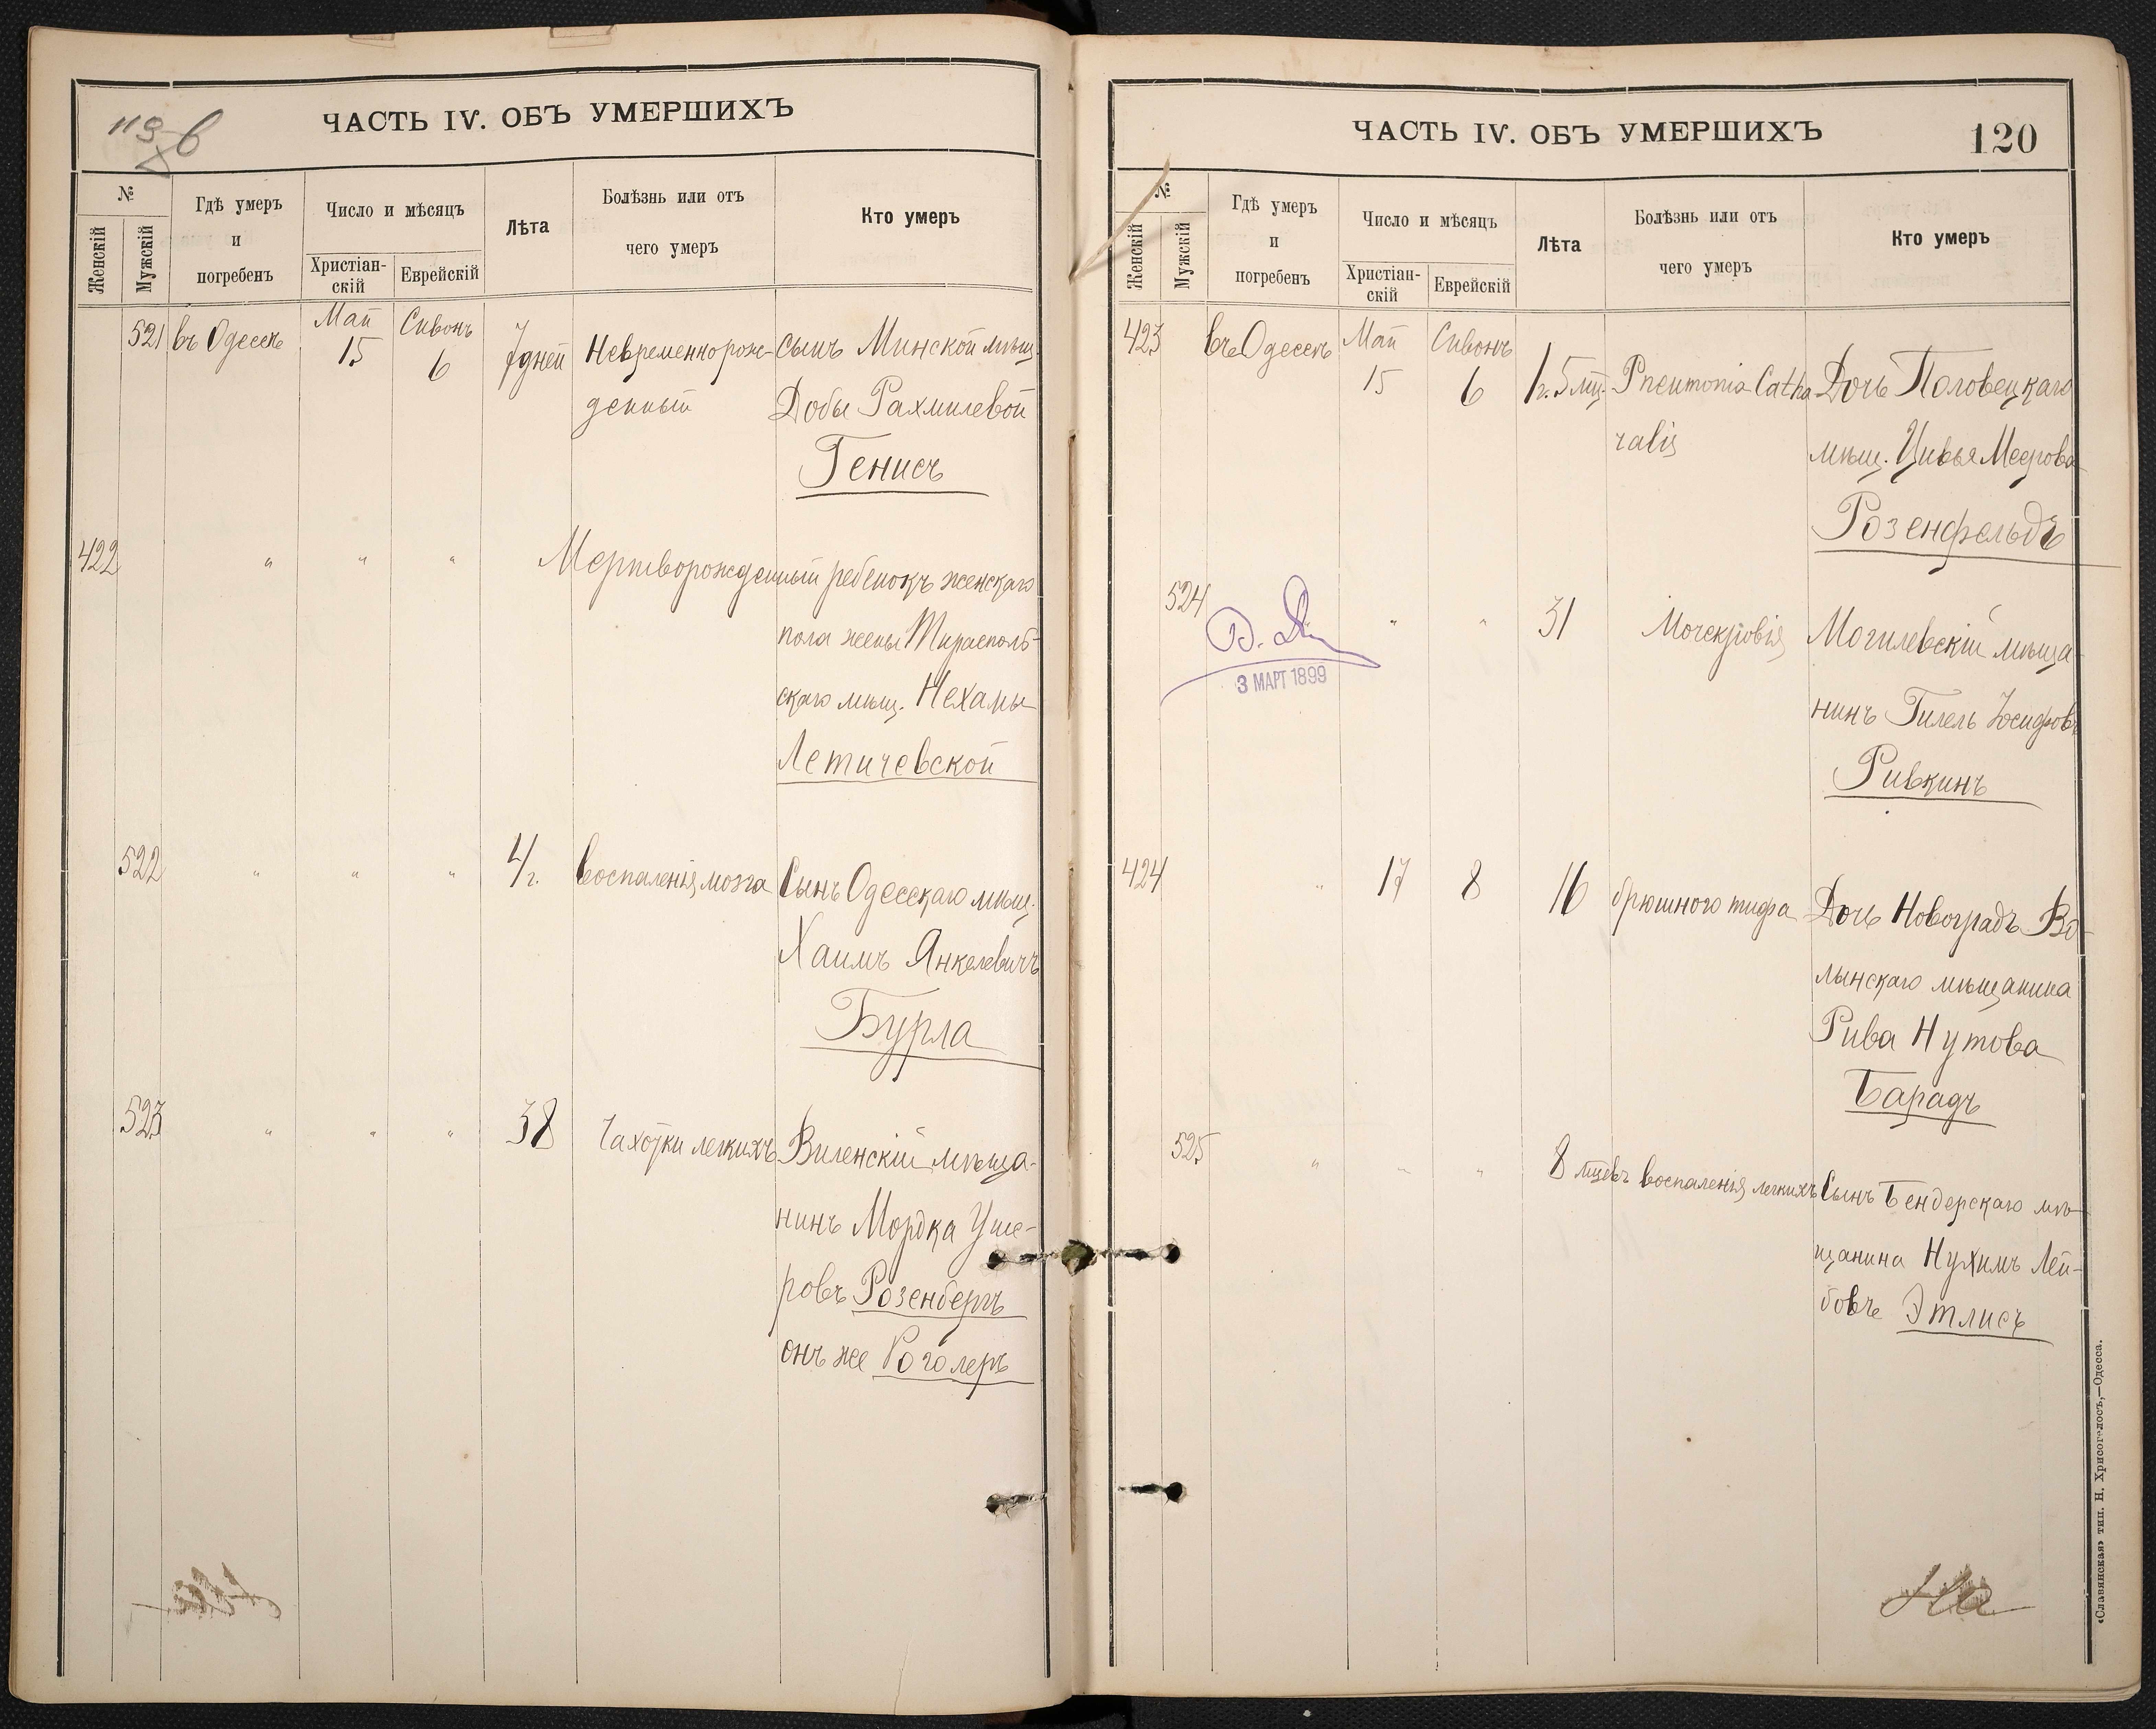 ЧАСТЬ IV. ОБЪ УМЕРШИХЪ
№
Женскій
Мужскій
Гдѣ умеръ
и
погребенъ
Число и мѣсяцъ
Христіан-
скій
Еврейскій
Лѣта
Болѣзнь или отъ
чего умеръ
Кто умеръ
521 въ Одессѣ Май 15 Сивонъ 6 7 дней Невременнорож- сынъ Минской мѣщ.
денный Добы Рахмилевой
Генисъ
422 " " " Мертворожденный ребенокъ женскаго
пола жены Тирасполь-
скаго мѣщ. Нехамы
Летичевской
522 " " " 4 г. воспаленія мозга Сынъ Одесскаго мѣщ.
Хаимъ Янкелевичъ
Бурла
523 " " " 38 Чахотки легкихъ Виленскій мѣща-
нинъ Мордка Уше-
ровъ Розенбергъ
онъ же Роголеръ
ЧАСТЬ IV. ОБЪ УМЕРШИХЪ
120
№
Женскій
Мужскій
Гдѣ умеръ
и
погребенъ
Число и мѣсяцъ
Христіан-
скій
Еврейскій
Лѣта
Болѣзнь или отъ
чего умеръ
Кто умеръ
423 въ Одессѣ Май 15 Сивонъ 6 1 г. 5 мц. Pneumonia Catha Дочь Половецкаго
ralis мѣщ. Цивья Меерова
Розенфельдъ
524 " " 31 Мочекровія Могилевскій мѣща-
3 МАРТ 1899
нинъ Гилель Іосифовъ
Ривкинъ
424 " 17 8 16 брюшного тифа Дочь Новоградъ Во-
лынскаго мѣщанина
Рива Нутова
Барадъ
525 " " " 8 мцевъ воспаленія легкихъ Сынъ Бендерскаго мѣ-
щанина Нухимъ Лей-
бовъ Этлисъ
«Славянская» тип. Н. Хрисогелосъ,—Одесса.